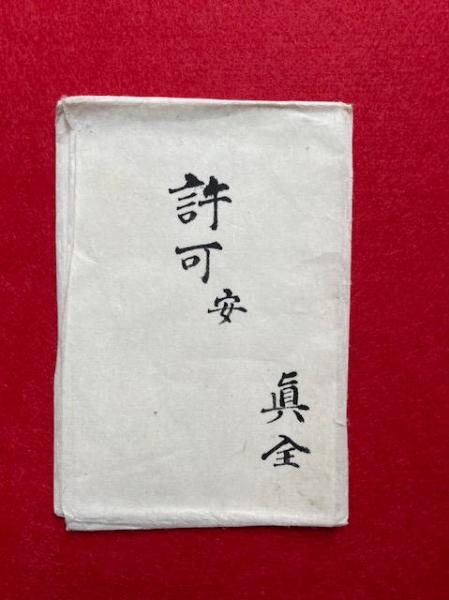 許可安
眞全